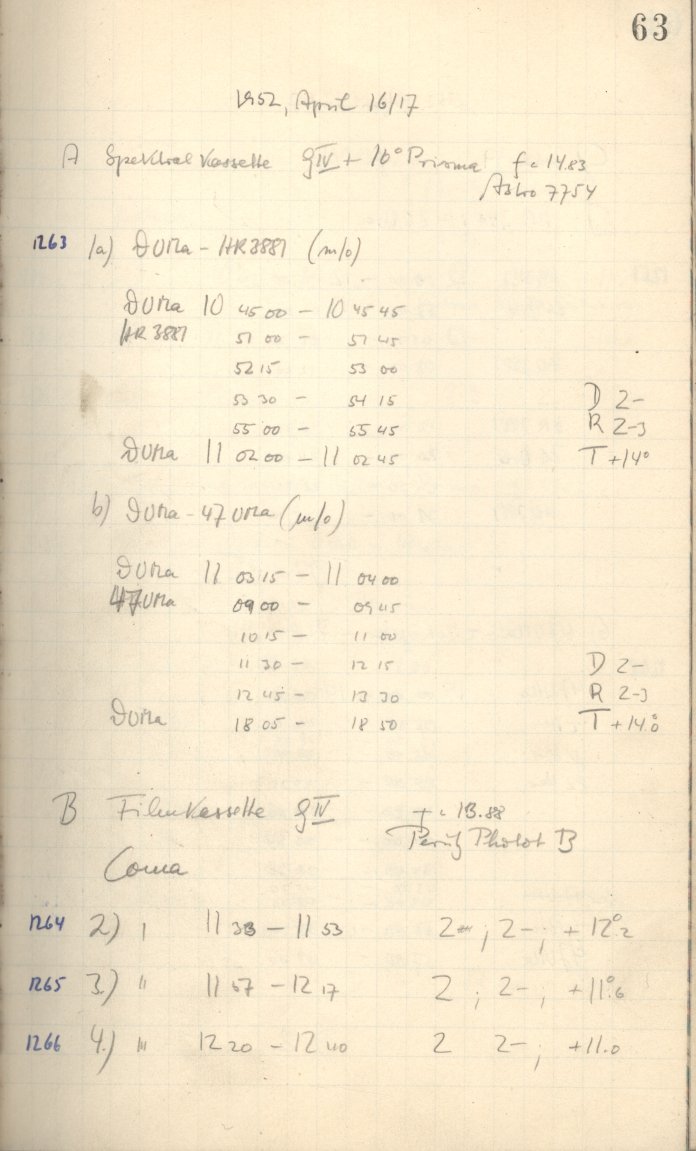 63
1952, April 16/17
A Spektralkassette gIV + 16° Prisma f = 14.83
Astro 7754
1263 1a) ϑ UMa - HR 3881 (m/o)
ϑ UMa 10 45 00 - 10 45 45
HR 3881 51 00 - 51 45
52 15 53 00
53 30 - 54 15 D 2-
55 00 - 55 45 R 2-3
ϑ UMa 11 02 00 - 11 02 45 T +14°
b) ϑ UMa - 47 UMa (m/o)
ϑ UMa 11 03 15 - 11 04 00
47 UMa 09 00 - 09 45
10 15 - 11 00
11 30 - 12 15 D 2-
12 45 - 13 30 R 2-3
ϑ UMa 18 05 - 18 50 T +14.°0
B Filmkassette gIV f = 13.88
Perutz Photot B
Coma
1264 2.) I 11 33 - 11 53 2- ; 2- ; +12.°2
1265 3.) II 11 57 - 12 17 2 ; 2- , +11.°6
1266 4.) III 12 20 - 12 40 2 2- ; +11.0